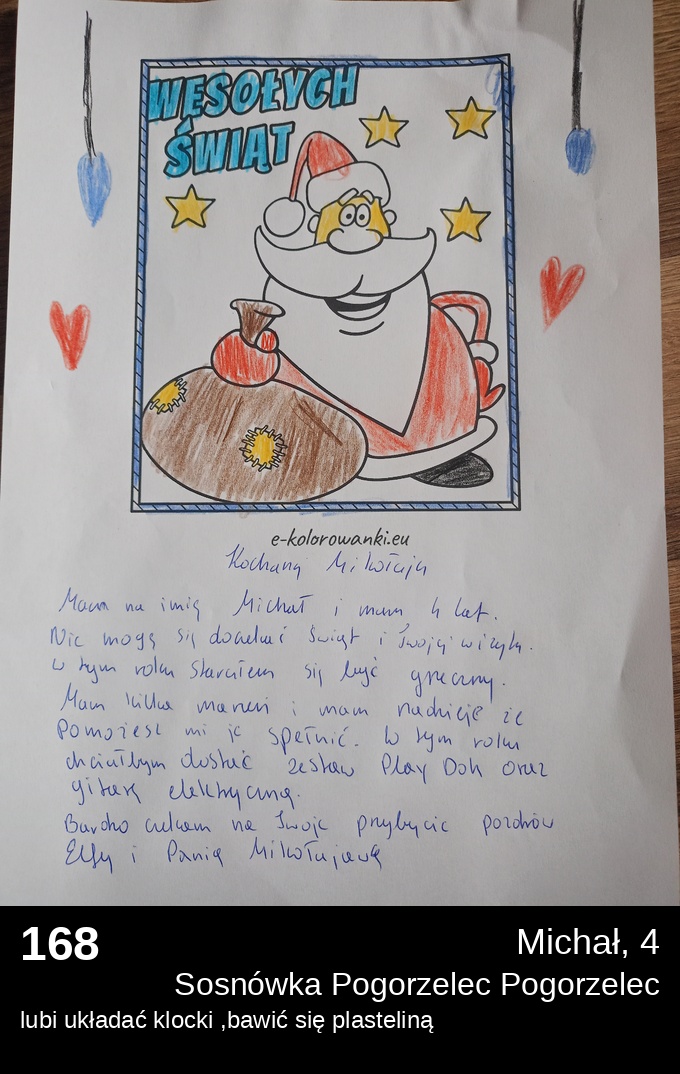 WESOŁYCH
ŚWIĄT
e-kolorowanki.eu
Kochany Mikołaju
Mam na imię Michał i mam 4 lat.
Nie mogę się doczekać Świąt i Twojej wizyty.
W tym roku starałem się być grzeczny.
Mam kilka marzeń i mam nadzieję że
Pomożesz mi je spełnić. W tym roku
chciałbym dostać zestaw Play Doh oraz
gitarę elektryczną.
Bardzo czekam na Twoje przybycie pozdrów
Elfy i Panią Mikołajową
168
Michał, 4
Sosnówka Pogorzelec Pogorzelec
lubi układać klocki ,bawić się plasteliną